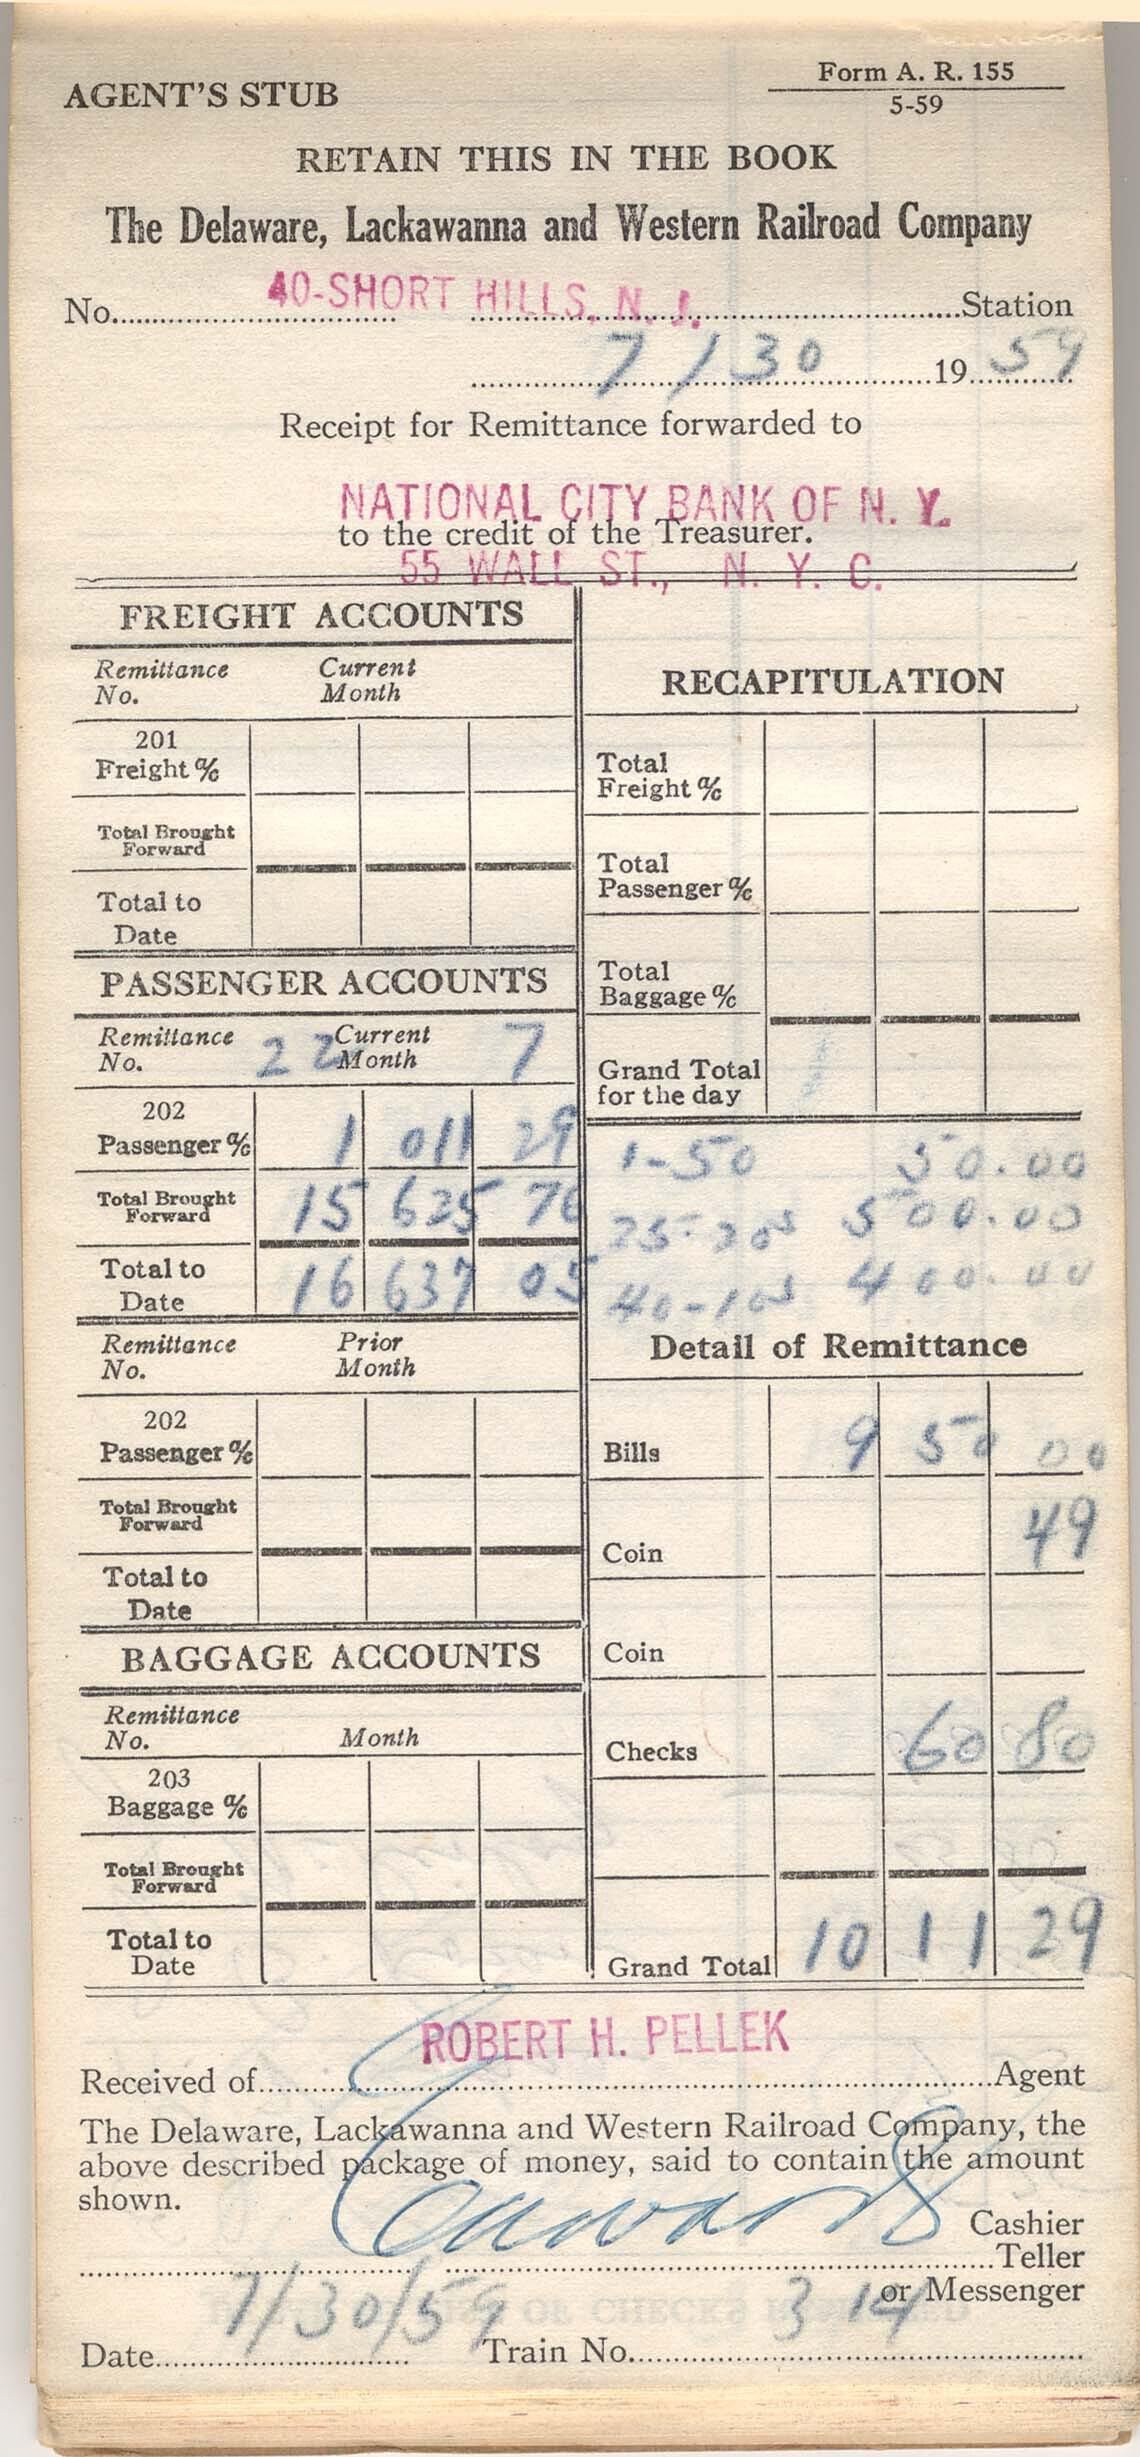 AGENT'S STUB
Form A. R. 155
5-59
RETAIN THIS IN THE BOOK
The Delaware, Lackawanna and Western Railroad Company
No. 40-SHORT HILLS, N. J. Station
7/30 19 59
Receipt for Remittance forwarded to
NATIONAL CITY BANK OF N. Y.
to the credit of the Treasurer.
55 WALL ST., N. Y. C.
FREIGHT ACCOUNTS
Remittance No. Current Month
201 Freight %
Total Brought Forward
Total to Date
PASSENGER ACCOUNTS
Remittance No. 22 Current Month 7
202 Passenger % 1 011 29
Total Brought Forward 15 625 76
Total to Date 16 637 05
Remittance No. Prior Month
202 Passenger %
Total Brought Forward
Total to Date
BAGGAGE ACCOUNTS
Remittance No. Month
203 Baggage %
Total Brought Forward
Total to Date
RECAPITULATION
Total Freight %
Total Passenger %
Total Baggage %
Grand Total for the day
1-50 50.00
25-20s 500.00
40-10s 400.00
Detail of Remittance
Bills 9 50 00
Coin 49
Coin
Checks 60 80
Grand Total 10 11 29
ROBERT H. PELLEK
Received of Agent
The Delaware, Lackawanna and Western Railroad Company, the
above described package of money, said to contain the amount
shown.
Cashier
Teller
or Messenger
Date 7/30/59 Train No. 314